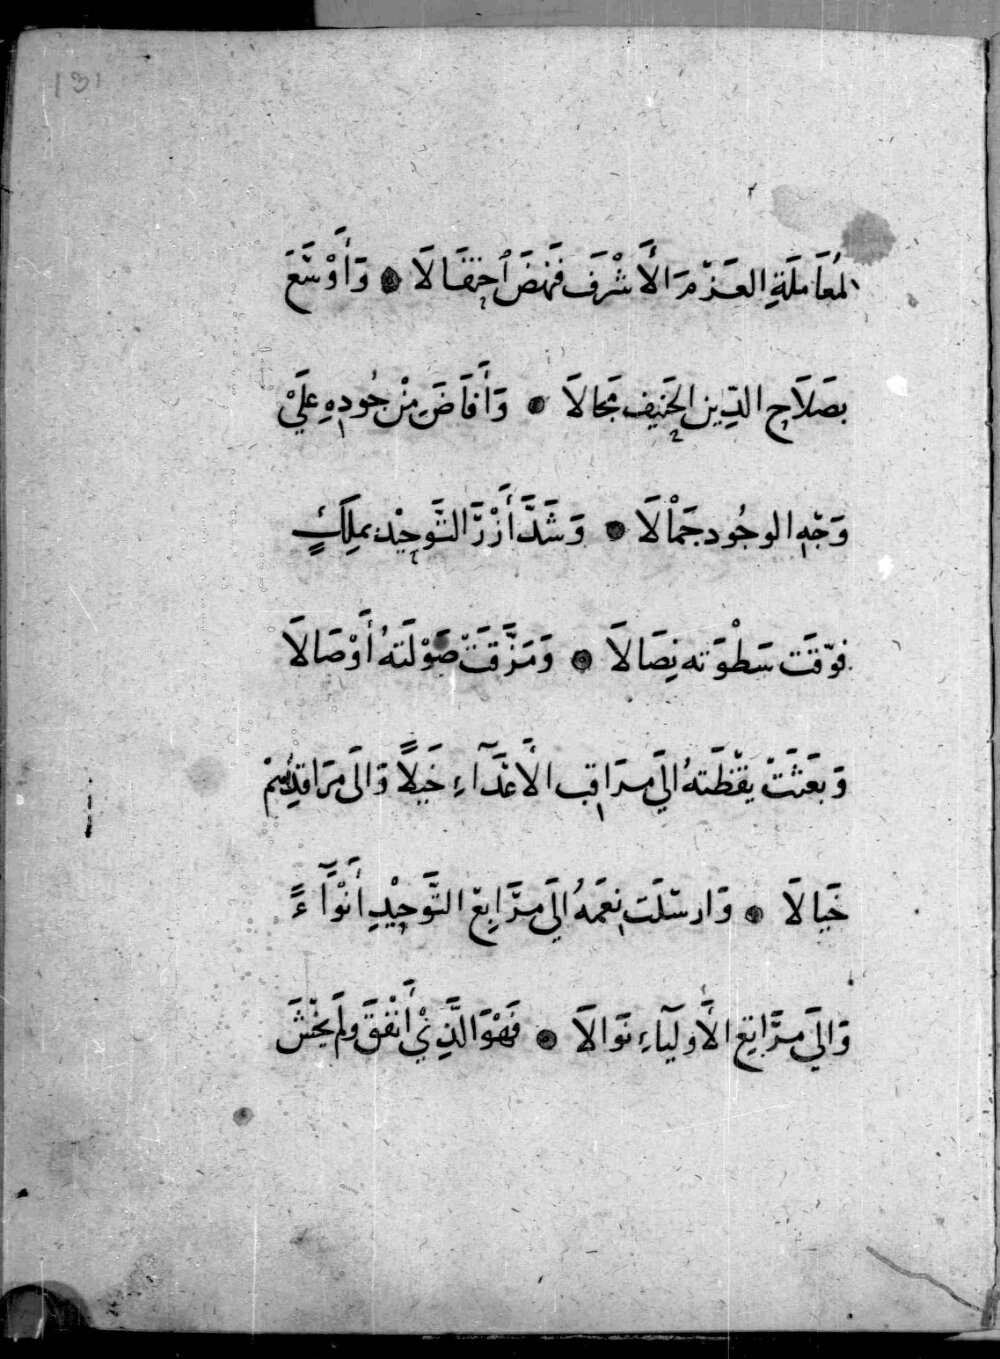 131
المُعَامَلَةِ العَزْمَ الأَشْرَفَ فَنَهَضَ ٱحْتِفَالَا ● وَأَوْسَعَ
بصَلَاحِ الدِّينِ الحَنِيفِ مَجَالَا ● وَأَفَاضَ مِنْ جُودِهِ عَلَيْ
وَجْهِ الوجُود جَمْالَا ● وَشَدَّ أَزْرَ التَّوحِيْد بمَلِكٍ
فوّقَت سَطْوَته نِصَالَا ● وَمَزَّقَتْ صَوْلَتهُ أَوْصَالَا
وَبعَثَتْ يقْظَتهُ الَي مرَاقِب الأَعْدَآءِ خَيلًا وَالَى مرَاقدِهُمْ
خَيالَا ● وَارسَلَت نِعَمَهُ الَي مرَّابِعْ التَّوحِيْدِ أَنْوَآءً
وَالَي مرَّابِع الأَوليَآءِ نَوالَا ● فَهْوَ الَّذِيْ أَنْفَقَ ولَم يَخْشَ